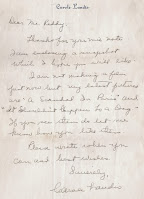 Carole Landis
Dear Mr. Reddy
Thanks for your note
I am enclosing a snapshot
which I hope you will like.
I am not making a film
just now but my latest pictures
are "A Scandal In Paris" and
"It Shouldn't Happen to a Dog"
If you see them do let me
know how you like them.
Bona wrote
and best wishes
Sincerely,
Carole Landis